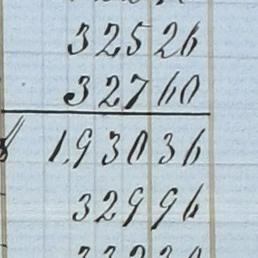 32526
32760
1,93036
32996